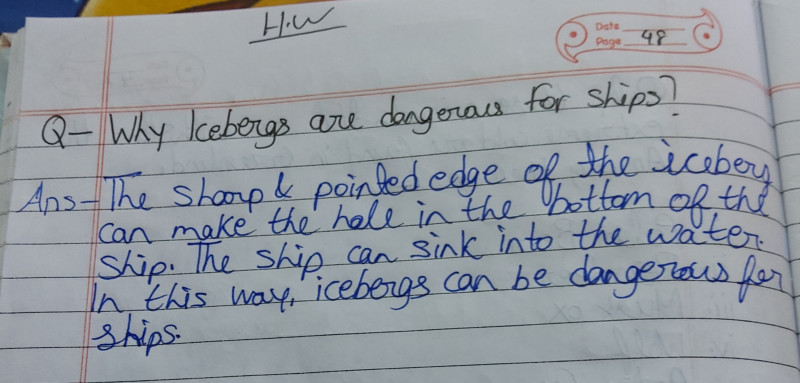 H.W
Date
Page 48
Q- Why Icebergs are dangerous for ships?
Ans- The sharp & pointed edge of the iceberg
can make the hole in the bottom of the
ship. The ship can sink into the water.
In this way, icebergs can be dangerous for
ships.